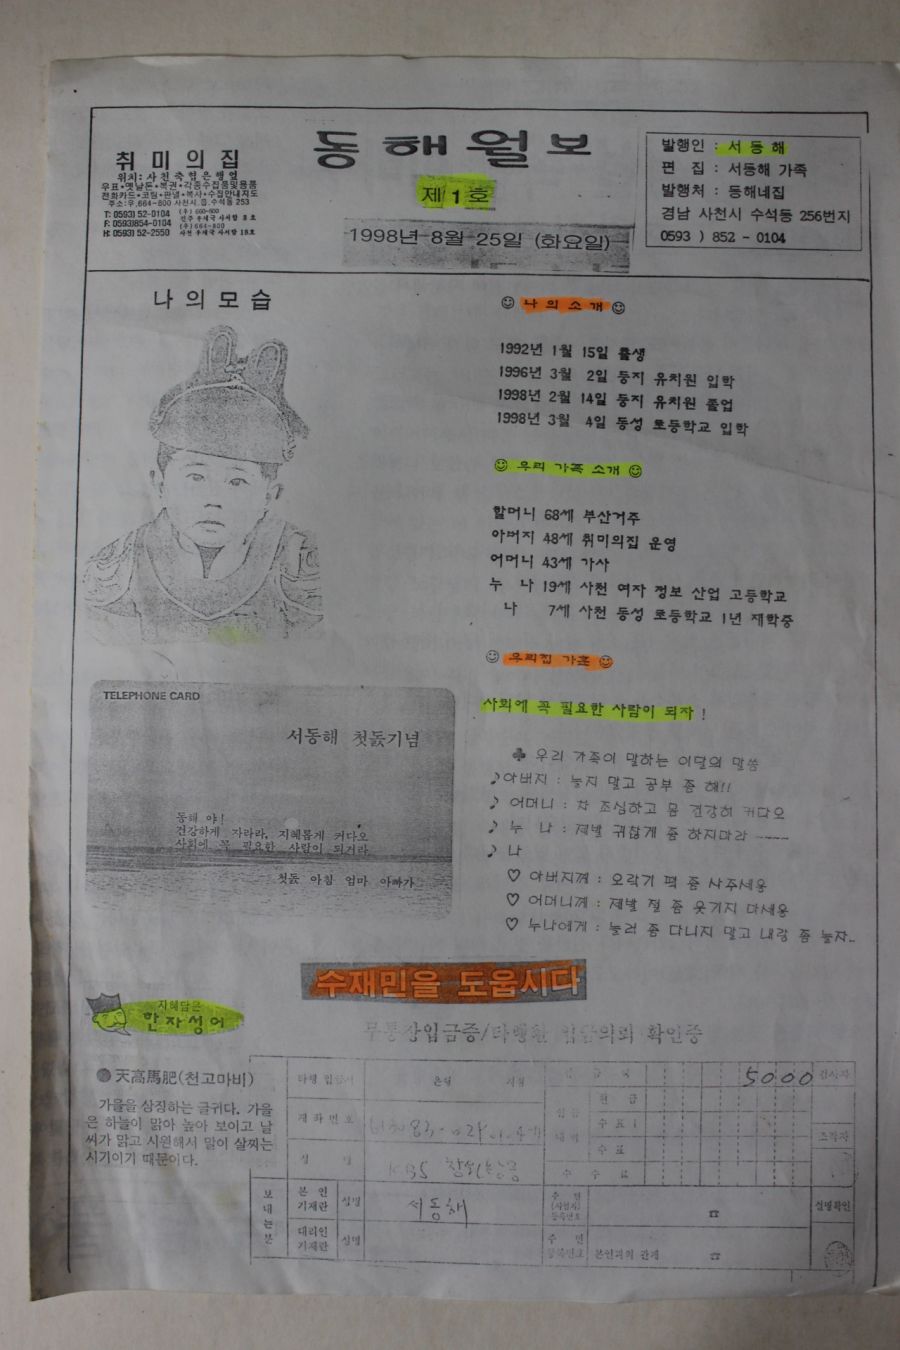 취 미 의 집
위치: 사천축협은행옆
우표•옛날돈•복권•각종수집품및용품
전화카드•코팅•판넬•복사•수집안내지도
주소:우,664-800 사천시.읍.수석동 253
T: 0593) 52-0104
F: 0593)854-0104
H: 0593) 52-2550
(우) 660-600
진주 우체국 사서함 호
(우) 664-800
사천 우체국 사서함 18호
동해월보
제 1 호
1998년-8월-25일 (화요일)
발행인 : 서 동 해
편 집 : 서동해 가족
발행처 : 동해네집
경남 사천시 수석동 256번지
0593 ) 852 - 0104
나 의 모 습
나 의 소 개
1992년 1월 15일 출생
1996년 3월 2일 둥지 유치원 입학
1998년 2월 14일 둥지 유치원 졸업
1998년 3월 4일 동성 초등학교 입학
우리 가족 소개
할머니 68세 부산거주
아버지 48세 취미의집 운영
어머니 43세 가사
누 나 19세 사천 여자 정보 산업 고등학교
나 7세 사천 동성 초등학교 1년 재학중
우리집 가훈
사회에 꼭 필요한 사람이 되자 !
TELEPHONE CARD
서동해 첫돐기념
동해 야!
건강하게 자라라, 지혜롭게 커다오
사회에 꼭 필요한 사람이 되거라
첫돐 아침 엄마 아빠가
♣ 우리 가족이 말하는 이달의 말씀
♪아버지 : 놀지 말고 공부 좀 해!!
♪ 어머니 : 차 조심하고 몸 건강히 커다오
♪ 누 나 : 제발 귀찮게 좀 하지마라 ~~~~
♪ 나
♡ 아버지께 : 오락기 팩 좀 사주세용
♡ 어머니께 : 제발 절 좀 웃기지 마세용
♡ 누나에게 : 놀러 좀 다니지 말고 내랑 좀 놀자..
수재민을 도웁시다
지혜담은
한자성어
무통장입금증/타행환 입금의뢰 확인증
● 天高馬肥(천고마비)
가을을 상징하는 글귀다. 가을
은 하늘이 맑아 높아 보이고 날
씨가 맑고 시원해서 말이 살찌는
시기이기 때문이다.
은행 지점
5000
계좌번호
현 금
수표
성 명
KBS
수 수 료
보내는분
본 인
기재란
성명
서동해
주 민
(사업자)
등록번호
☎
실명확인
대리인
기재란
성명
주 민
등록번호
본인과의 관계
☎